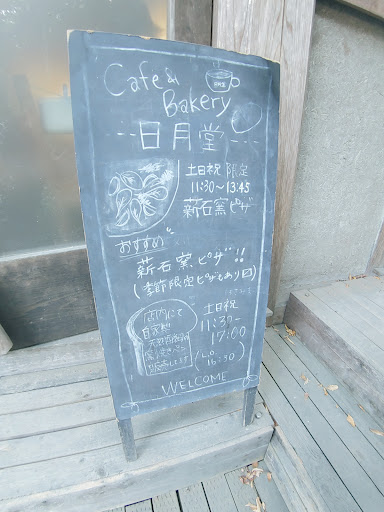 Cafe &
Bakery
日月堂
土日祝 限定
11:30～13:45
薪石窯ピザ
おすすめ
薪石窯ピザ!!
(季節限定ピザもあり〼)
店内にて
自家製
土日祝
11:30-
17:00
(L.O
16:30)
WELCOME